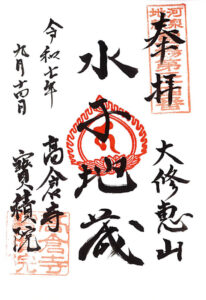 奉拝
大修恵山
水子地蔵
高倉寺
寶積院
令和七年
九月十四日